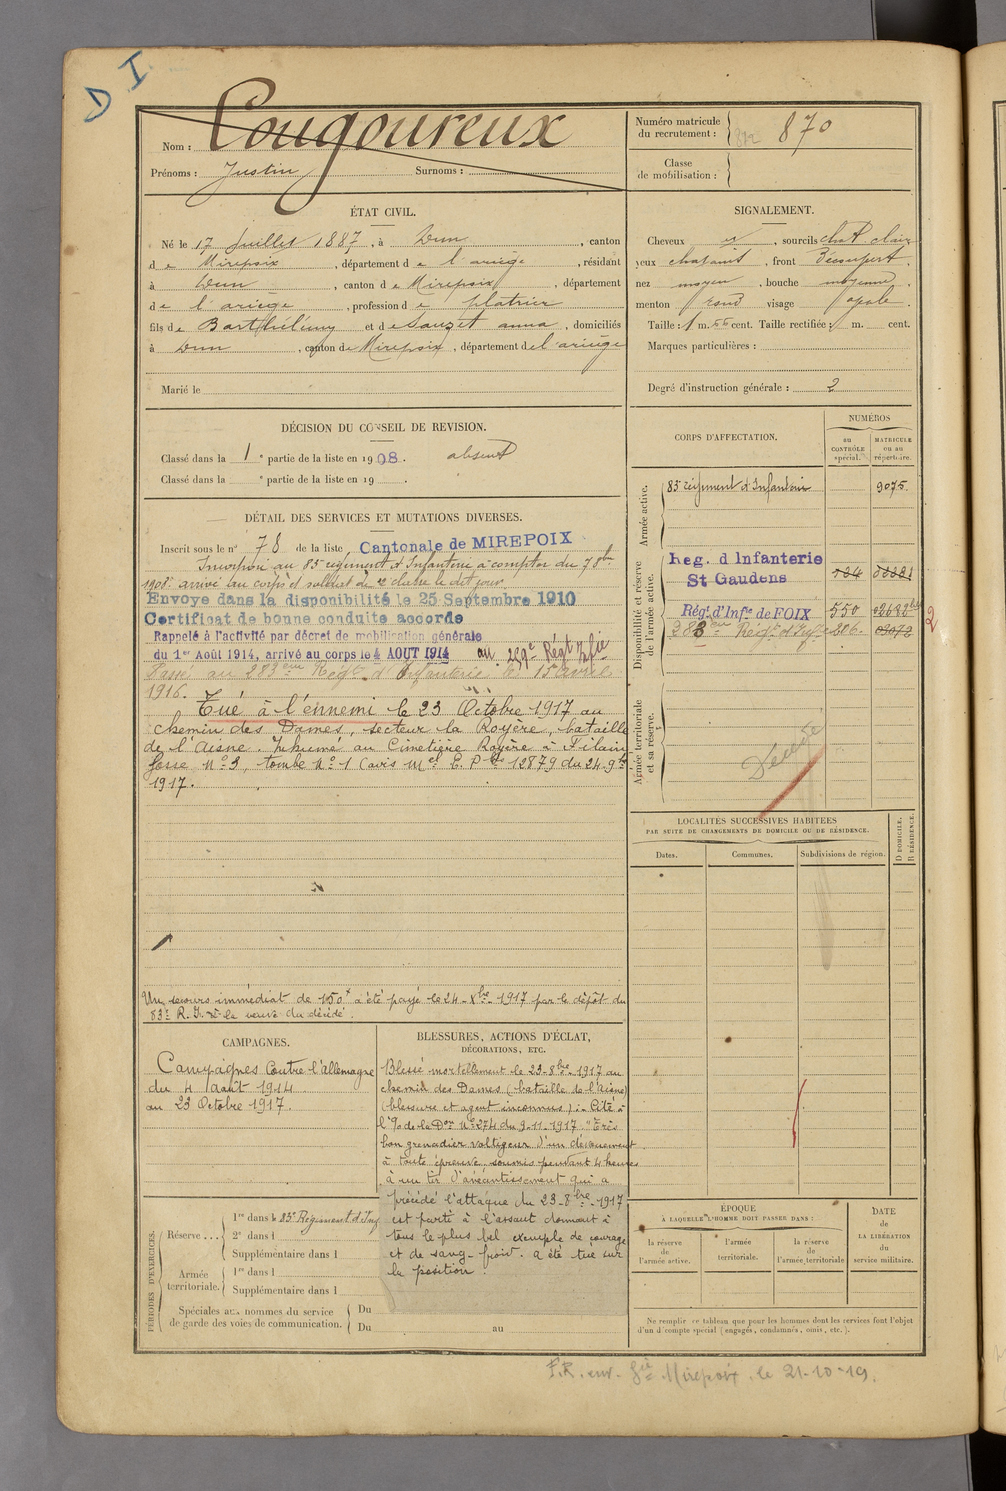 D I
Nom : Cougoureux
Prénoms : Justin Surnoms :
Numéro matricule du recrutement : 870
Classe de mobilisation :
ÉTAT CIVIL.
Né le 17 Juillet 1887, à Dun, canton
de Mirepoix, département de l'ariège, résidant
à Dun, canton de Mirepoix, département
de l'ariège, profession de platrier
fils de Barthélémy et de Sauzet anna, domiciliés
à Dun, canton de Mirepoix, département de l'ariège
Marié le
SIGNALEMENT.
Cheveux et, sourcils chat clair
yeux chatains, front découvert.
nez moyen, bouche moyenne
menton rond visage ovale.
Taille : 1 m. 66 cent. Taille rectifiée : m. cent.
Marques particulières :
Degré d'instruction générale : 2
DÉCISION DU CONSEIL DE REVISION.
Classé dans la 1e partie de la liste en 1908. absent
Classé dans la e partie de la liste en 19 .
DÉTAIL DES SERVICES ET MUTATIONS DIVERSES.
Inscrit sous le n° 78 de la liste Cantonale de MIREPOIX
Incorporé au 83 régiment d'Infanterie à compter du 7 8bre
1908. arrivé au corps et soldat de 2e classe le dit jour
Envoye dans la disponibilité le 25 Septembre 1910
Certificat de bonne conduite accorde
Rappelé à l'activité par décret de mobilisation générale
du 1er Août 1914, arrivé au corps le 4 AOUT 1914 au 259e Régt Ifie
Passé au 283eme Régt d'Infanterie le 15 avril
1916.
Tué à l'ennemi le 23 Octobre 1917 au
chemin des Dames, secteur la Royère, bataille
de l'Aisne. Inhumé au Cimetière Royère à Filain
fosse N° 3, tombe N° 1 (avis Mel E. P. 12879 du 24-9bre
1917.
Un secours immédiat de 150f a été payé le 24-Xbre-1917 par le dépôt du
83e R.I. à la veuve du décédé.
CORPS D'AFFECTATION.
NUMÉROS
au CONTRÔLE spécial.
MATRICULE ou au répertoire.
Armée active.
83 régiment d'Infanterie 9075.
Disponibilité et réserve de l'armée active.
Reg. d Infanterie
St Gaudens
Régt d'Infie de FOIX 550
283eme Régt d'Infie 206.
2
Armée territoriale et sa réserve.
Décédé
LOCALITÉS SUCCESSIVES HABITÉES
PAR SUITE DE CHANGEMENTS DE DOMICILE OU DE RÉSIDENCE.
Dates. Communes. Subdivisions de région.
D DOMICILE.
R RÉSIDENCE.
CAMPAGNES.
Campagnes Contre l'Allemagne
du 4 Août 1914
au 23 Octobre 1917.
BLESSURES, ACTIONS D'ÉCLAT,
DÉCORATIONS, ETC.
Blessé mortellement le 23-8bre-1917 au
chemin des Dames (bataille de l'Aisne)
(blessure et agent inconnus) :- Cité à
l'O. de la Don N° 274 du 9-11-1917 "Très
bon grenadier voltigeur d'un dévouement
à toute épreuve, soumis pendant 4 heures
à un tir d'anéantissement qui a
précédé l'attaque du 23-8bre-1917
est parti à l'assaut donnant à
tous le plus bel exemple de courage
et de sang-froid. a été tué sur
la position.
PÉRIODES D'EXERCICES.
Réserve...
1re dans le 83e Régiment d'Inf
2e dans l
Supplémentaire dans l
Armée territoriale.
1re dans l
Supplémentaire dans l
Spéciales aux hommes du service
de garde des voies de communication.
Du
Du au
ÉPOQUE
À LAQUELLE L'HOMME DOIT PASSER DANS :
la réserve de l'armée active.
l'armée territoriale.
la réserve de l'armée territoriale
DATE de LA LIBÉRATION du service militaire.
Ne remplir ce tableau que pour les hommes dont les services font l'objet
d'un décompte spécial (engagés, condamnés, omis, etc.).
F.R. env. Gie Mirepoix. le 21-10-19.